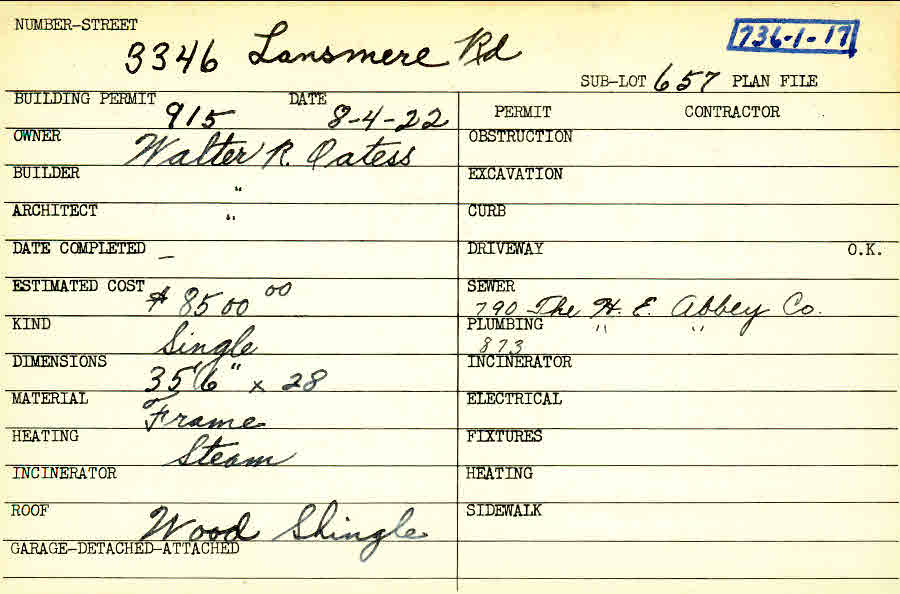 NUMBER-STREET
3346 Lansmere Rd
736-1-17
SUB-LOT 657 PLAN FILE
BUILDING PERMIT 915 DATE 8-4-22
PERMIT CONTRACTOR
OWNER Walter R. Oatess
OBSTRUCTION
BUILDER "
EXCAVATION
ARCHITECT "
CURB
DATE COMPLETED —
DRIVEWAY O.K.
ESTIMATED COST $8500 00
SEWER
790 The H. E. Abbey Co.
KIND Single
PLUMBING " "
873
DIMENSIONS 35'6" x 28
INCINERATOR
MATERIAL Frame
ELECTRICAL
HEATING Steam
FIXTURES
INCINERATOR
HEATING
ROOF Wood Shingle
SIDEWALK
GARAGE-DETACHED-ATTACHED